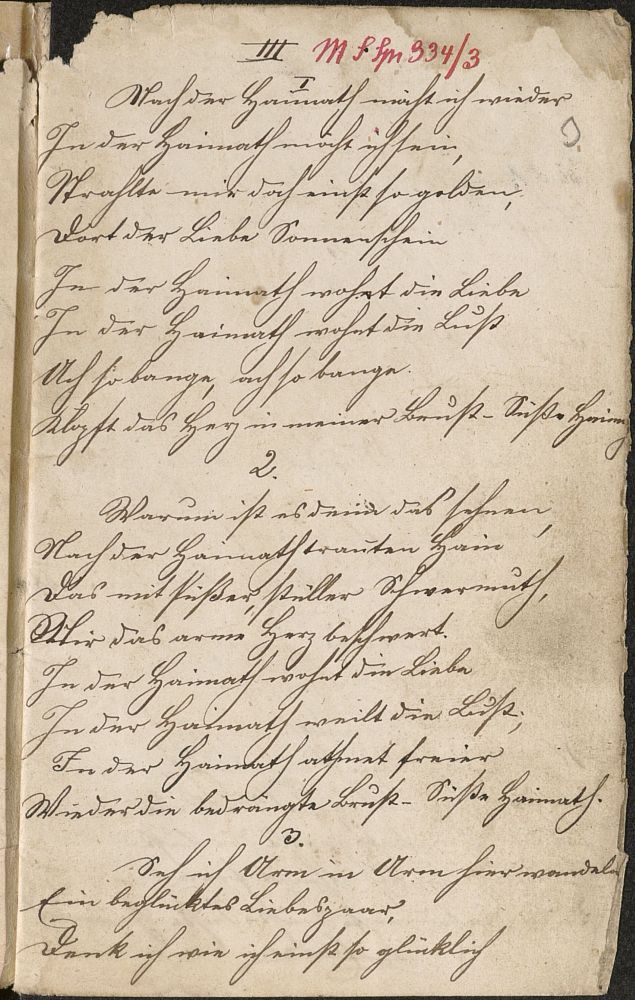 III M S Spr 334/3
I
Nach der Haimath möcht ich wieder
In der Haimath möcht ich sein,
Strahlte mir doch einst so golden,
Dort der Liebe Sonnenschein
In der Haimath wohnt die Liebe
In der Haimath wohnt die Lust
Ach so bange, ach so bange.
Klopft das Herz in meiner Brust - Süße
2.
Warum ist es denn das sehnen,
Nach der Haimath trauten Hain
Das mit süßer, stiller Schwermuth,
Mir das arme Herz beschwert.
In der Haimath wohnt die Liebe
In der Haimath weilt die Lust,
In der Haimath athmet freier
Wieder die bedrängte Brust - Süße Haimath.
3.
Seh ich Arm in Arm hier wandeln
Ein beglücktes Liebespaar,
Denk ich wie ich einst so glücklich